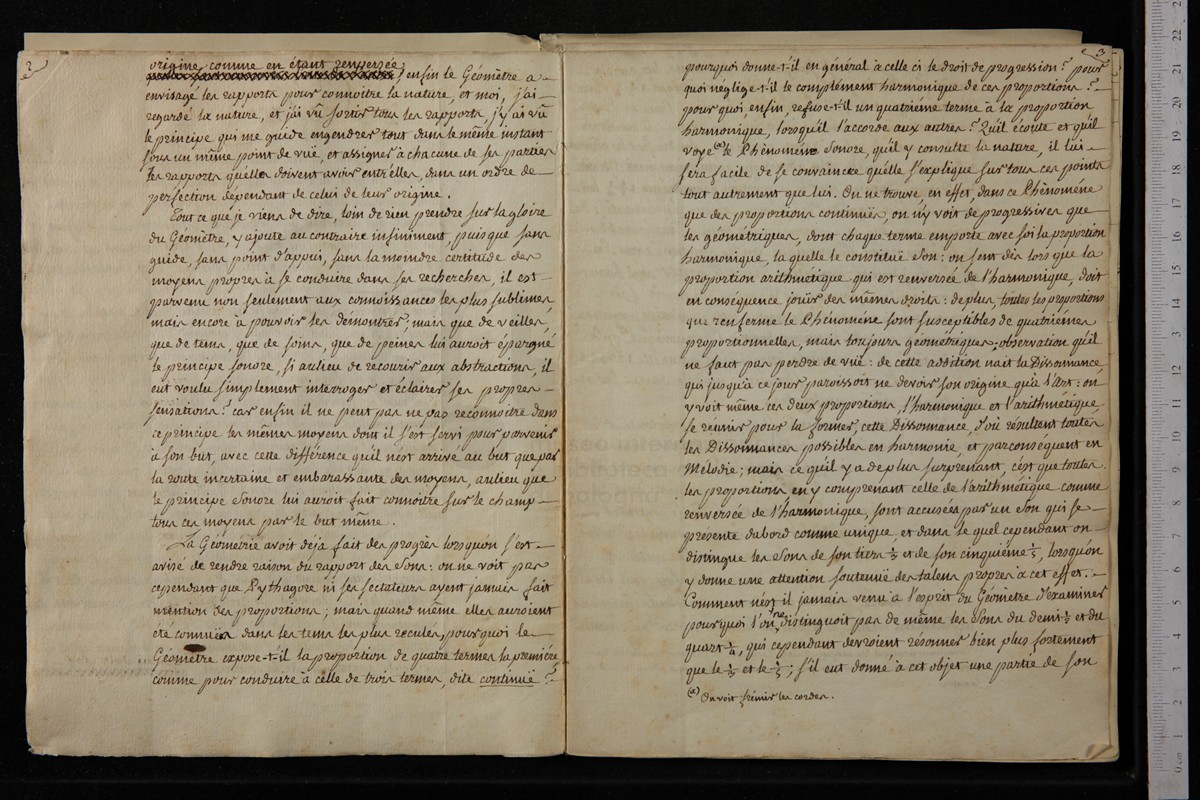 2
origine comme en étant renversée
enfin le Géomètre a
envisagé les rapports pour connoître la nature, et moi, j'ai
regardé la nature, et j'ai vû sortir tous les rapports, j'y ai vû
le principe qui me guide engendrer tout dans le même instant
sous un même point de vuë, et assigner à chacune de ses parties
les rapports quelles doivent avoir entr'elles, dans un ordre de
perfection dépendant de celui de leur origine.
Tout ce que je viens de dire, loin de rien prendre sur la gloire
du Géomètre, y ajoute au contraire infiniment, puisque sans
guide, sans point d'appui, sans la moindre certitude des
moyens propres à se conduire dans ses recherches, il est
parvenu non seulement aux connoissances les plus sublimes,
mais encore à pouvoir les démontrer; mais que de veilles,
que de tems, que de soins, que de peines lui auroit épargné
le principe sonore, si aulieu de recourir aux abstractions, il
eut voulu simplement interroger et éclairer ses propres
sensations? car enfin il ne peut pas ne pas reconnoître dans
ce principe les mêmes moyens dont il s'est servi pour parvenir
à son but, avec cette différence qu'il n'est arrivé au but que par
la route incertaine et embarassante des moyens, aulieu que
le principe Sonore lui auroit fait connoître sur le champ
tous ces moyens par le but même.
La Géométrie avoit déja fait des progrès lorsqu'on s'est
avisé de rendre raison du rapport des Sons: on ne voit pas
cependant que Pythagore ni ses sectateurs ayent jamais fait
mention des proportions; mais quand même elles auroient
été connuës dans les tems les plus reculés, pourquoi le
Géomètre expose-t-il la proportion de quatre termes la première
comme pour conduire à celle de trois termes, dite continuë?
3
pourquoi donne-t-il en général à celle ci le droit de progression? pour
quoi néglige-t-il le complément harmonique de ces proportions?
pourquoi, enfin, refuse-t-il un quatrième terme à la proportion
harmonique, lorsqu'il l'accorde aux autres? Qu'il écoute et qu'il
voye (a) le Phénomène Sonore, qu'il y consulte la nature, il lui
sera facile de se convaincre qu'elle s'explique sur tous ces points
tout autrement que lui. On ne trouve, en effet, dans ce Phénomène
que des proportions continuës, on n'y voit de progressives que
les géometriques, dont chaque terme emporte avec soi la proportion
harmonique, la quelle le constituë Son: on sent dès lors que la
proportion arithmétique qui est renversée de l'harmonique, doit
en conséquence joüir des mêmes droits: de plus, toutes les proportions
que renferme le Phénomène sont susceptibles de quatrièmes
proportionnelles, mais toujours géometriques; observation qu'il
ne faut pas perdre de vuë: de cette addition nait la Dissonnance,
qui jusqu'à ce jour paroissoit ne devoir son origine qu'à l'Art: on
y voit même ces deux proportions, l'harmonique et l'arithmétique
se réunir pour la former, cette Dissonnance, d'où résultent toutes
les Dissonnances possibles en harmonie, et parconséquent en
Mélodie; mais ce qu'il y a de plus surprenant, c'est que toutes
les proportions en y comprenant celle de l'arithmétique comme
renversée de l'harmonique, sont accusées par un Son qui se
présente dabord comme unique, et dans le quel cependant on
distingue les Sons de son tiers 1/3 et de son cinquième 1/5, lorsqu'on
y donne une attention soutenuë des talens propres à cet effet.
Comment n'est il jamais venu à l'esprit du Géomètre d'examiner
pourquoi l'on ne distinguoit pas de même les Sons du demi 1/2 et du
quart 1/4, qui cependant devroient résonner bien plus fortement
que le 1/3 et le 1/5; s'il eut donné à cet objet une partie de son
(a) On voit frémir les cordes.